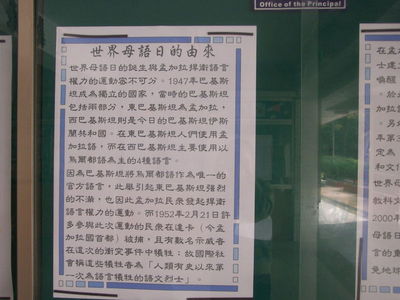 Office of the Principal
世界母語日的由來
世界母語日的誕生與孟加拉捍衛語言
權力的運動密不可分。1947年巴基斯
坦成為獨立的國家,當時的巴基斯坦
包括兩部分,東巴基斯坦為孟加拉,
西巴基斯坦則是今日的巴基斯坦伊斯
蘭共和國。在東巴基斯坦人們使用孟
加拉語,而在西巴基斯坦主要使用以
烏爾都語為主的4種語言。
因為巴基斯坦將烏爾都語作為唯一的
官方語言,此舉引起東巴基斯坦強烈
的不滿,也因此孟加拉民眾發起捍衛
語言權力的運動。而1952年2月21日許
多參與此次運動的民眾在達卡(今孟
加拉國首都)被捕,且有數名示威者
在這次的衝突事件中犧牲;故國際社
會稱這些犧牲者為「人類有史以來第
一次為語言犧牲的語文烈士」。
在孟
士處
喚醒
。於
加拉
。另
年第
定為
和文
世界母
教科文
2000年
母語日
言的東
兔地球